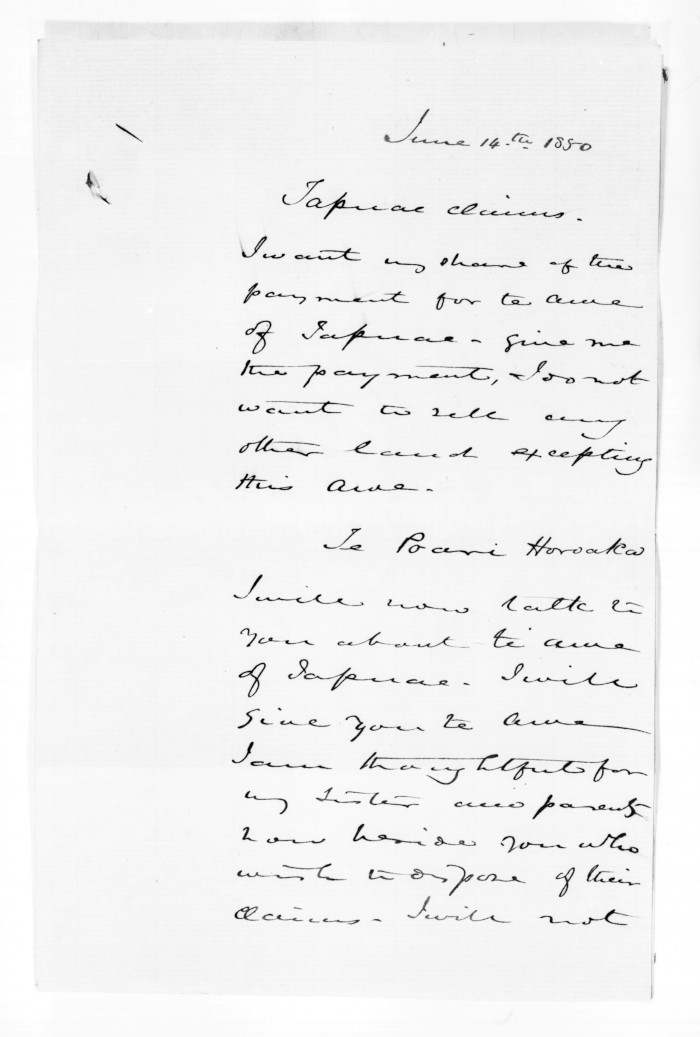 June 14th 1850
Tapuae claims.
I want my share of the
payment for te awe
of Tapuae - give me
the payment, I do not
want to sell any
other land excepting
this awe.
Te Poari Horoaka
I will now talk to
you about te awe
of Tapuae - I will
give you te awe
I am thoughtful for
my sister and parents
now beside you who
wish to dispose of their
claims - I will not